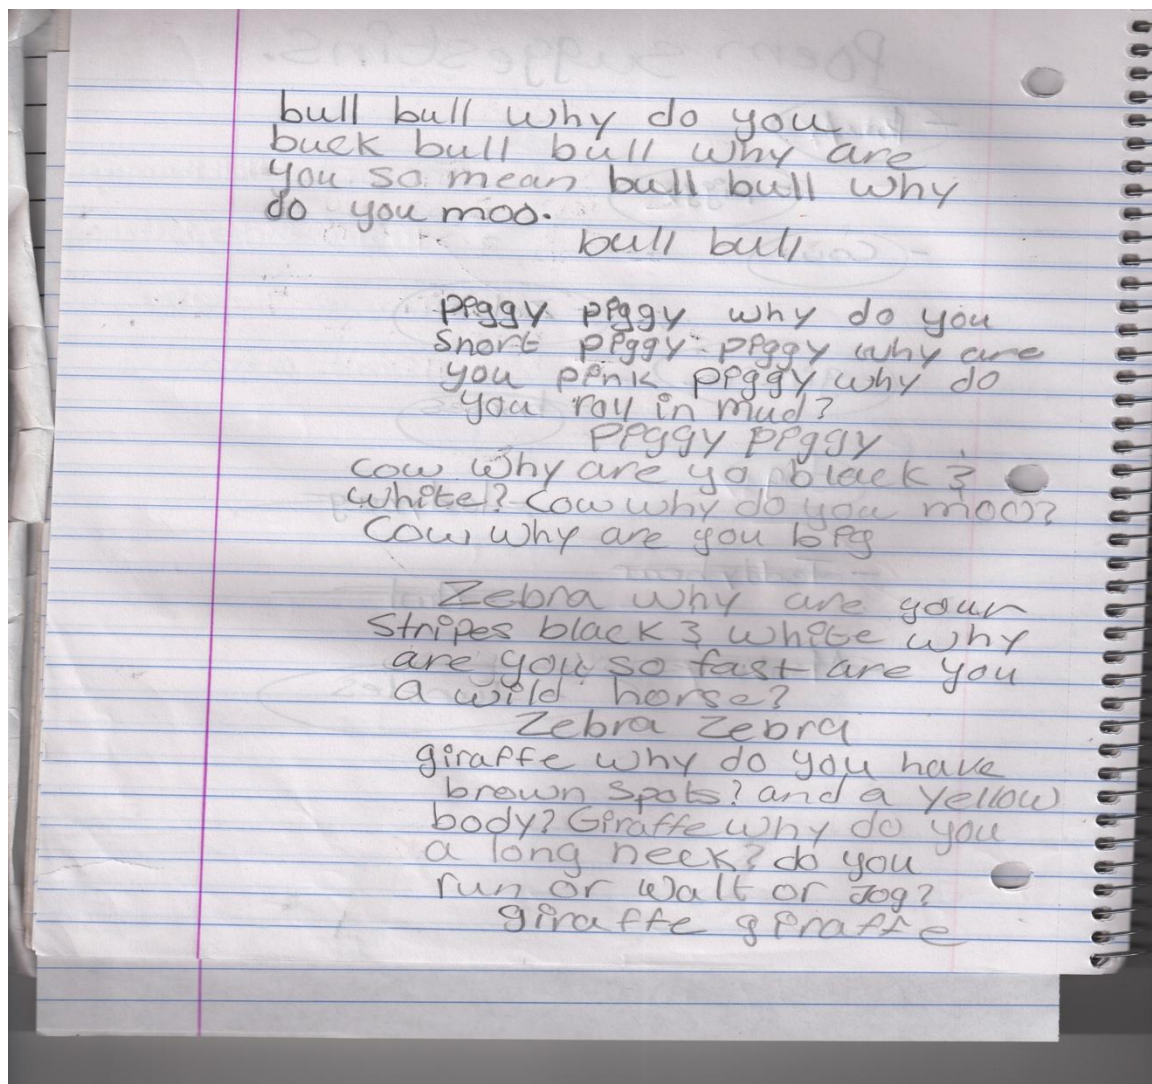 bull bull why do you
buck bull bull why are
you so mean bull bull why
do you moo.
bull bull
piggy piggy why do you
snort piggy piggy why are
you pink piggy why do
you roll in mud?
piggy piggy
cow why are yo black &
white? Cow why do you moo?
Cow why are you big
Zebra why are your
stripes black & white why
are you so fast are you
a wild horse?
Zebra Zebra
giraffe why do you have
brown spots? and a yellow
body? Giraffe why do you
a long neck? do you
run or walt or Jog?
giraffe giraffe